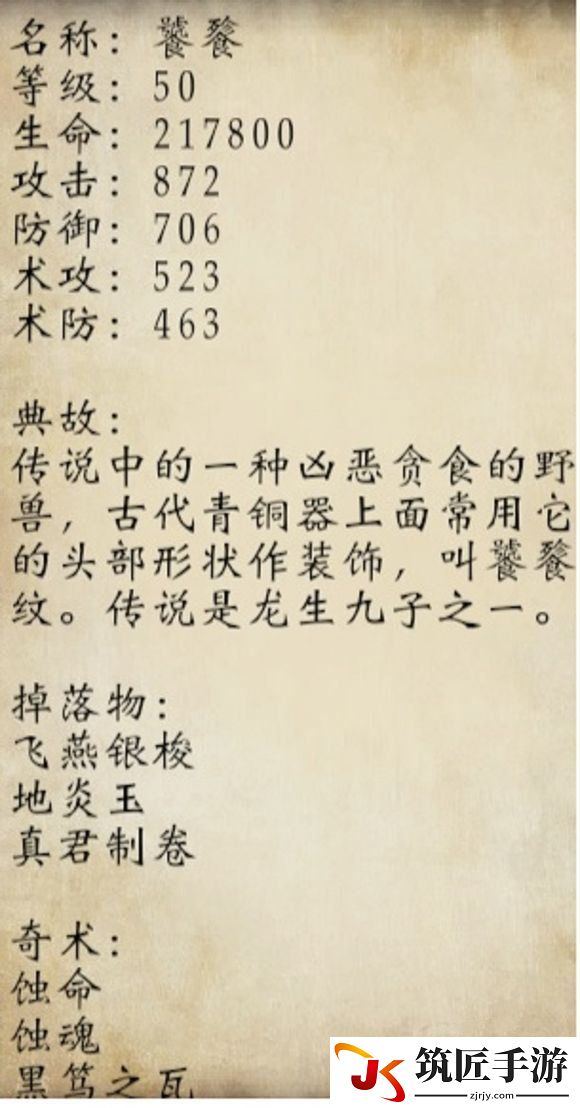 名称：饕餮
等级：50
生命：217800
攻击：872
防御：706
术攻：523
术防：463
典故：
传说中的一种凶恶贪食的野
兽，古代青铜器上面常用它
的头部形状作装饰，叫饕餮
纹。传说是龙生九子之一。
掉落物：
飞燕银梭
地炎玉
真君制卷
奇术：
蚀命
蚀魂
黑笃之瓦
JK 筑匠手游
zjrjy.com